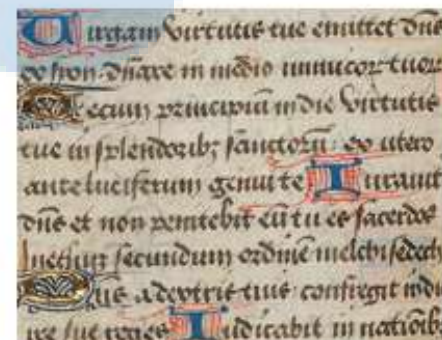 Uirgam virtutis tue emittet dñs
ex syon· dñare in medio inimicor tuor
Tecum principiũ in die virtutis
tue in splendorib; sanctorũ· ex utero
ante luciferum genui te Iurauit
dñs et non penitebit eũ tu es sacerdos
secundum ordinẽ melchisedech
a dextris tuis confregit in di
ire sue reges Iudicabit in nationib